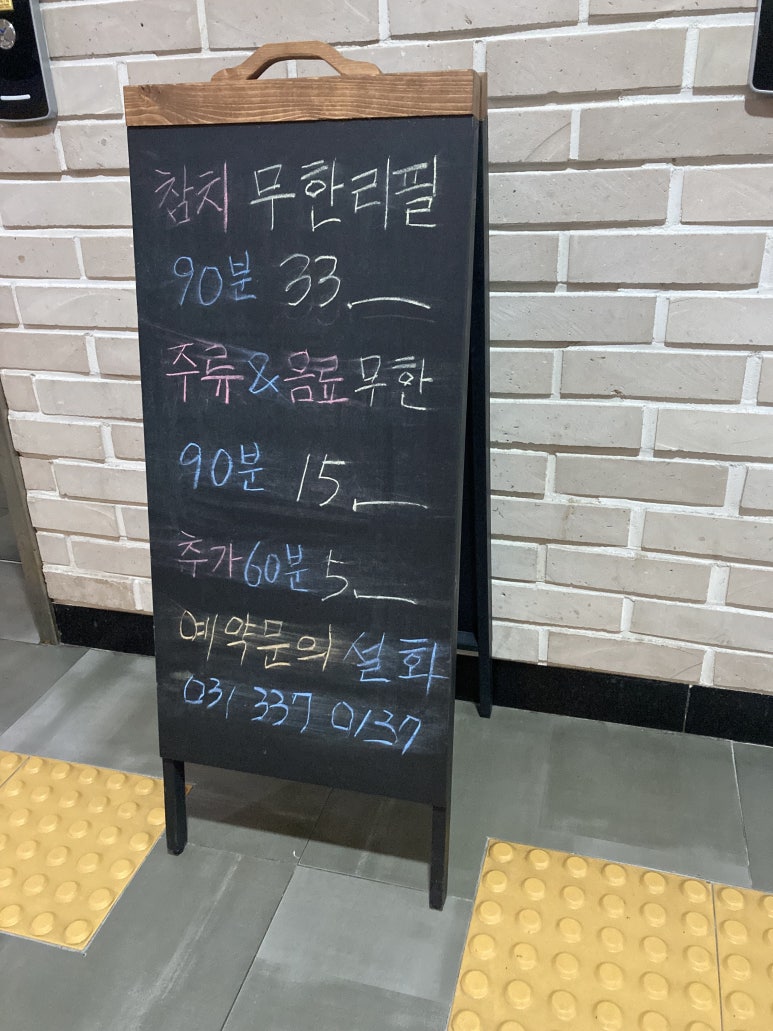 참치 무한리필
90분 33.—
주류&음료무한
90분 15.—
추가60분 5.—
예약문의 설화
031 337 0137